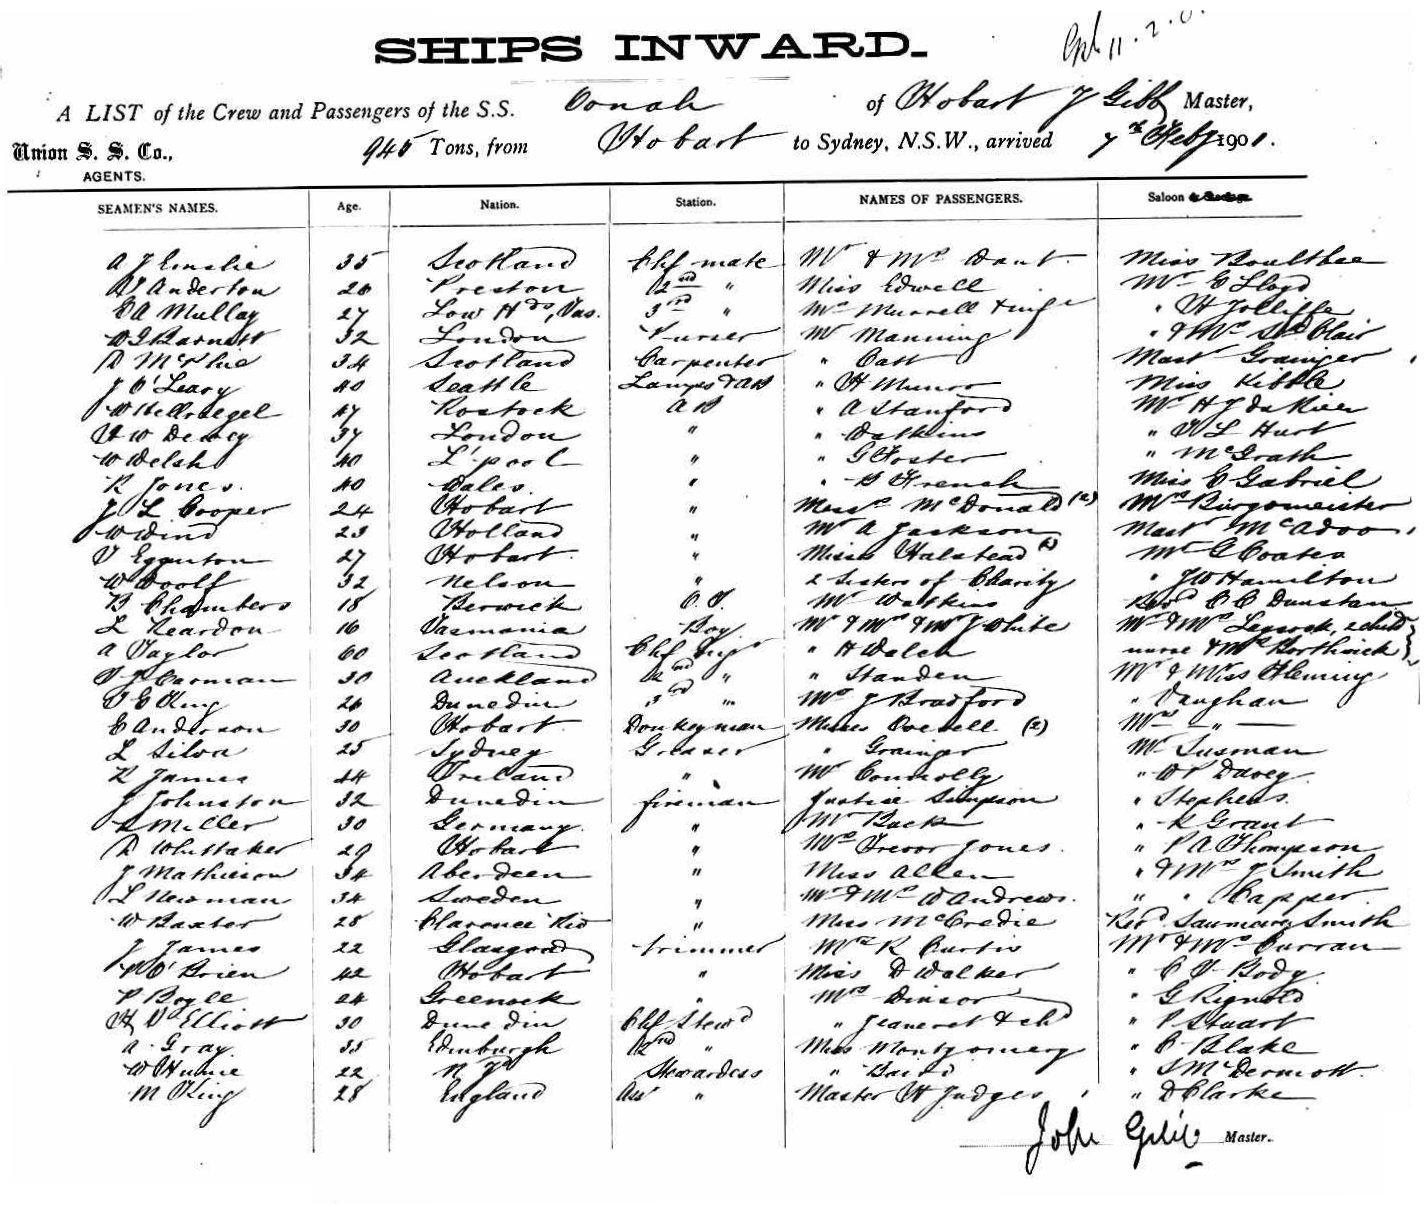 11.2.0
SHIPS INWARD.
A LIST of the Crew and Passengers of the S.S. Oonah of Hobart J Gibb Master,
Union S. S. Co., 945 Tons, from Hobart to Sydney, N.S.W., arrived 7th Feby 1901.
AGENTS.
SEAMEN'S NAMES. Age. Nation. Station. NAMES OF PASSENGERS. Saloon
A J Emslie 35 Scotland Chf mate Mr & Mrs Dant. Miss Boulthee
Anderton 26 Preston 2nd " Miss Edwell Mr C Lloyd
A Mullay 27 Low Hds, Tas. 3rd " Mrs Murrell & inft " H Jolliffe
W J Barnett 32 London Purser Mr Manning " & Mrs St Clair
D McPhie 34 Scotland Carpenter " Catt Mast Grainger
J O'Leary 40 Seattle Lamps & AB " H Munro Miss Kibble
W Hellwegel 47 Rostock AB " A Stanford Mr H J
H W Dewey 37 London " " Watkins " L Hurt
W Welsh 40 L'pool " " G Foster " McGrath
R Jones 40 Wales. " " French Miss C Gabriel
J L Cooper 24 Hobart " Mess McDonald (2) Mrs Burgomeister
W Wind 23 Holland " Mr A Jackson Mast McAdoo
T Egginton 27 Hobart " Misses Halstead Mr Coates
W Woolf 32 Nelson " 2 Sisters of Charity " J W Hamilton
B Chambers 18 Berwick O.S. Mr Watkins Revd C C Dunstan
L Reardon 16 Tasmania Boy Mr & Mrs & Mr J White Mr & Mrs 2 child
A Taylor 60 Scotland Chf Engr " H Walch nurse & Mr Borthwick
Carman 30 Auckland 2nd " " Standen Mr & Miss Fleming
T E King 26 Dunedin 3rd " Mrs J Bradford " Vaughan
C Anderson 30 Hobart Donkeyman Misses Overell (2) Mrs "
L Silva 25 Sydney Greaser " Grainger Mr Susman
K James 44 Ireland " Mr Connolly " Davey
J Johnston 32 Dunedin fireman Justice Simpson " Stephens.
Miller 30 Germany " Mr Buck " K Grant
D Whittaker 29 Hobart " Mrs Trevor Jones. " P A Thompson
J Mathieson 34 Aberdeen " Miss Allen " & Mrs J Smith
L Newman 34 Sweden " Mr & Mrs W Andrews. " " Capper
W Baxter 28 Clarence " Miss McCredie Revd Saumarez Smith
J James 22 Glasgow trimmer Mrs R Curtis Mr & Mrs Curran
O'Brien 42 Hobart " Miss D Walker " C T Body
P Boyle 24 Greenock " Mrs Dinsor " G Rignold
H V Elliott 30 Dunedin Chf Stewd " Jeaneret & chd " P Stuart
A Gray 35 Edinburgh 2nd " Miss Montgomery " C Blake
W Hume 22 N Zd Stewardess " Baird " McDermott.
M King 28 England Ass " Master H Judges " D Clarke
John Gibb Master.